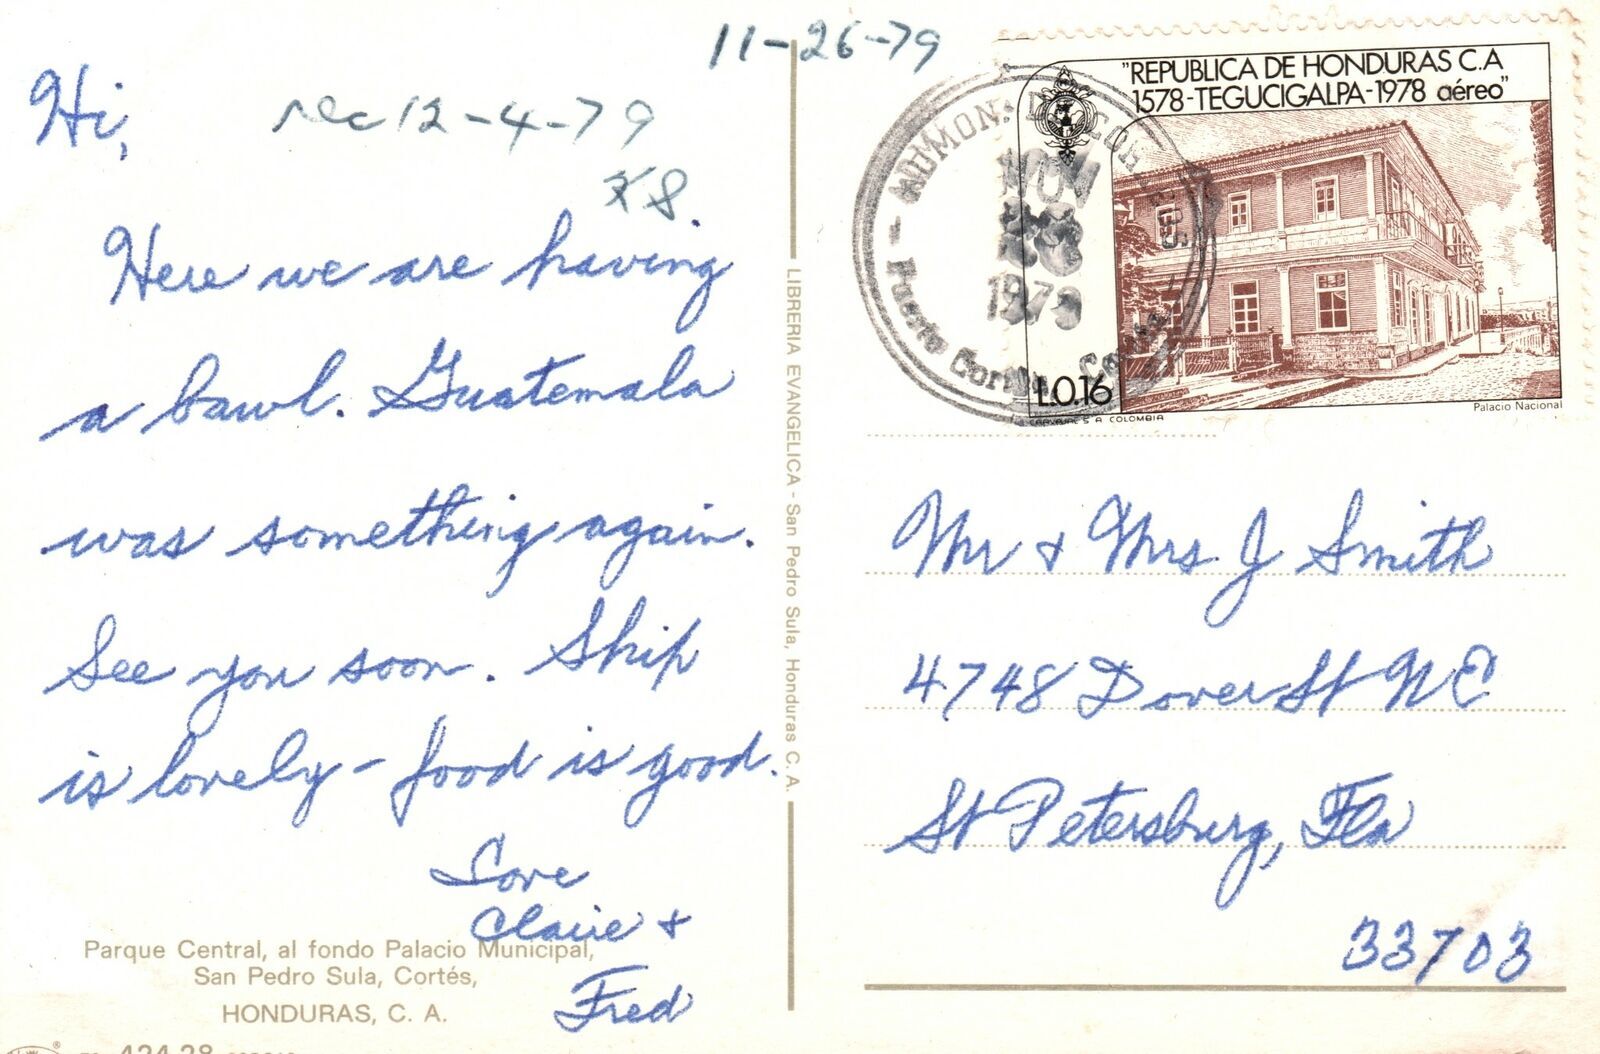 11-26-79
Hi,
rec 12-4-79
Here we are having
a bawl. Guatemala
was something again.
See you soon. Ship
is lovely - food is good.
Love
Claire &
Fred
Parque Central, al fondo Palacio Municipal,
San Pedro Sula, Cortés,
HONDURAS, C. A.
LIBRERIA EVANGELICA - San Pedro Sula, Honduras C. A.
"REPUBLICA DE HONDURAS C.A
1578-TEGUCIGALPA-1978 aéreo"
L0.16
Palacio Nacional
CARVAJAL S A COLOMBIA
ADMON. DE CORREOS
NOV
1979
Puerto Cortés, Cortés
Mr & Mrs J Smith
4748 Dover St NE
St Petersburg, Fla
33703